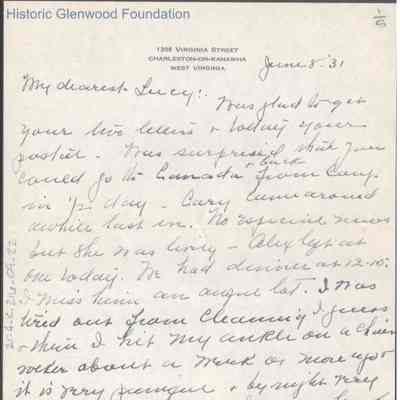 Historic Glenwood Foundation
1/6
1208 VIRGINIA STREET
CHARLESTON-ON-KANAWHA
WEST VIRGINIA
June 8 '31
My dearest Lucy:
Was glad to get
your two letters & today your
postal. Was surprised that you
could go to Canada & back from Camp
in ½ day. Cary came around
awhile last eve. No especial news
but she was lively - Alex left at
one today. We had dinner at 12-10.
I miss him an awful lot. I was
tired out from cleaning I guess
& then I hit my ankle on a
rocker about a week or more ago &
it is very painful & by night very